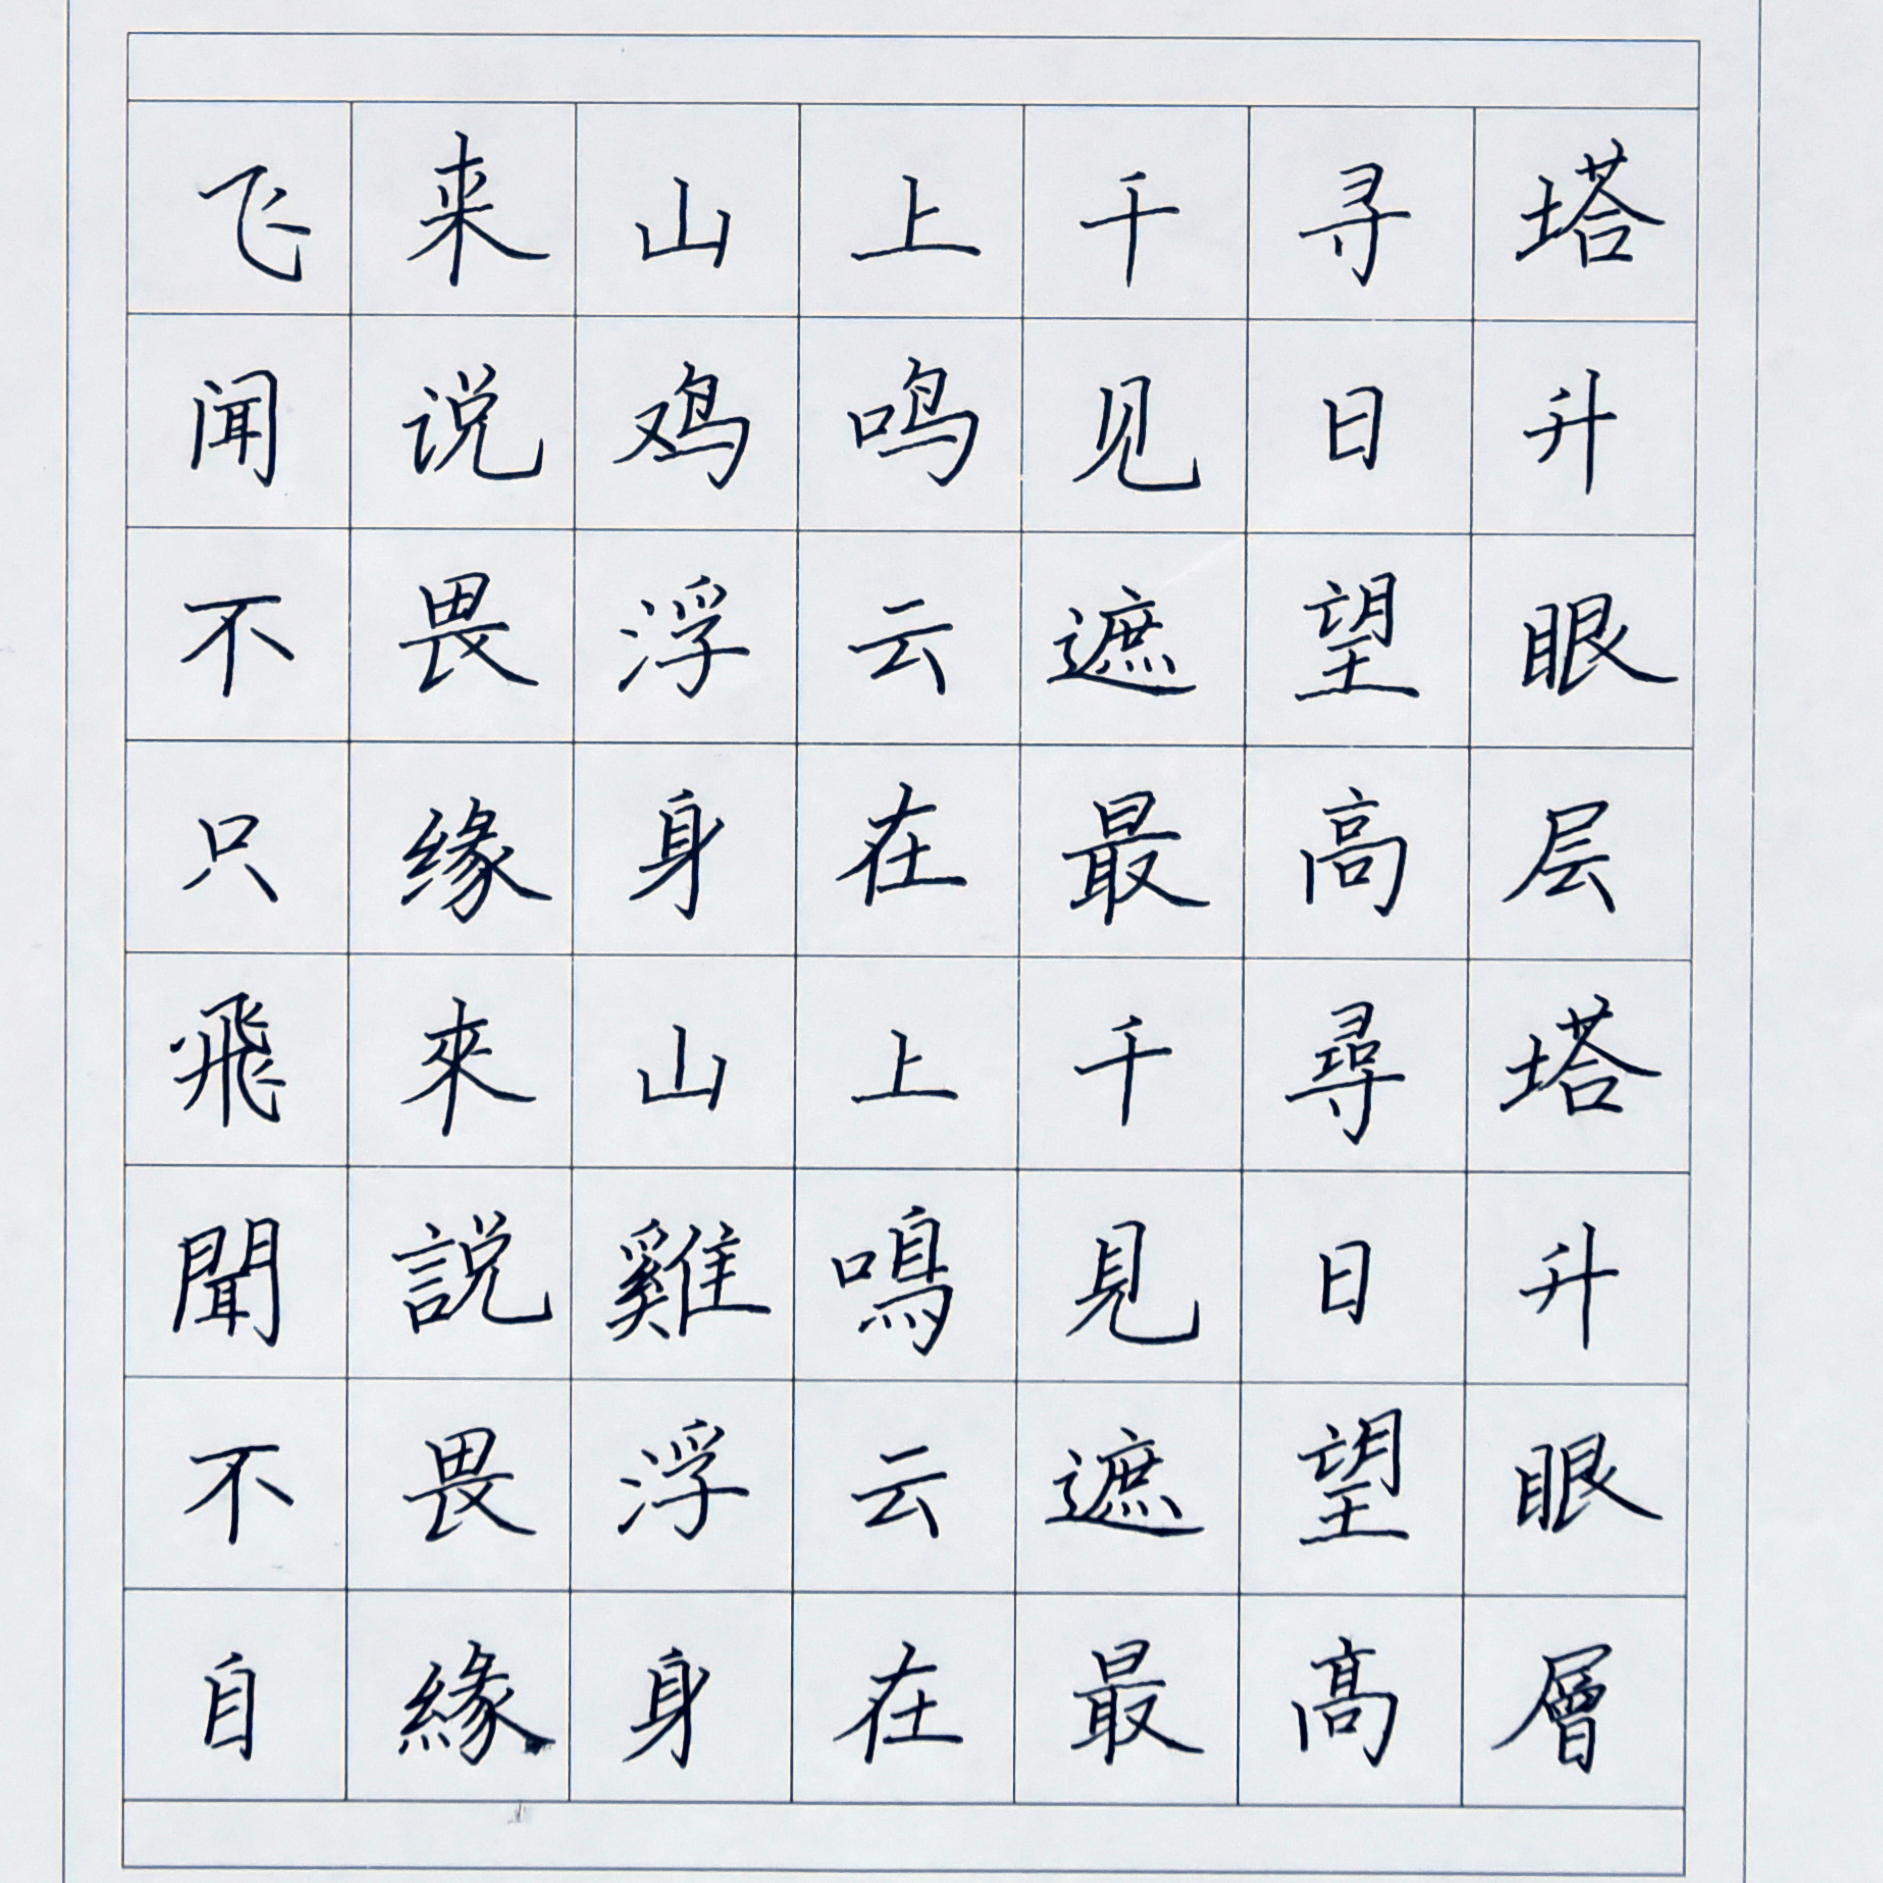 飞来山上千寻塔
闻说鸡鸣见日升
不畏浮云遮望眼
只缘身在最高层
飛來山上千尋塔
聞説雞鳴見日升
不畏浮云遮望眼
自緣身在最高層